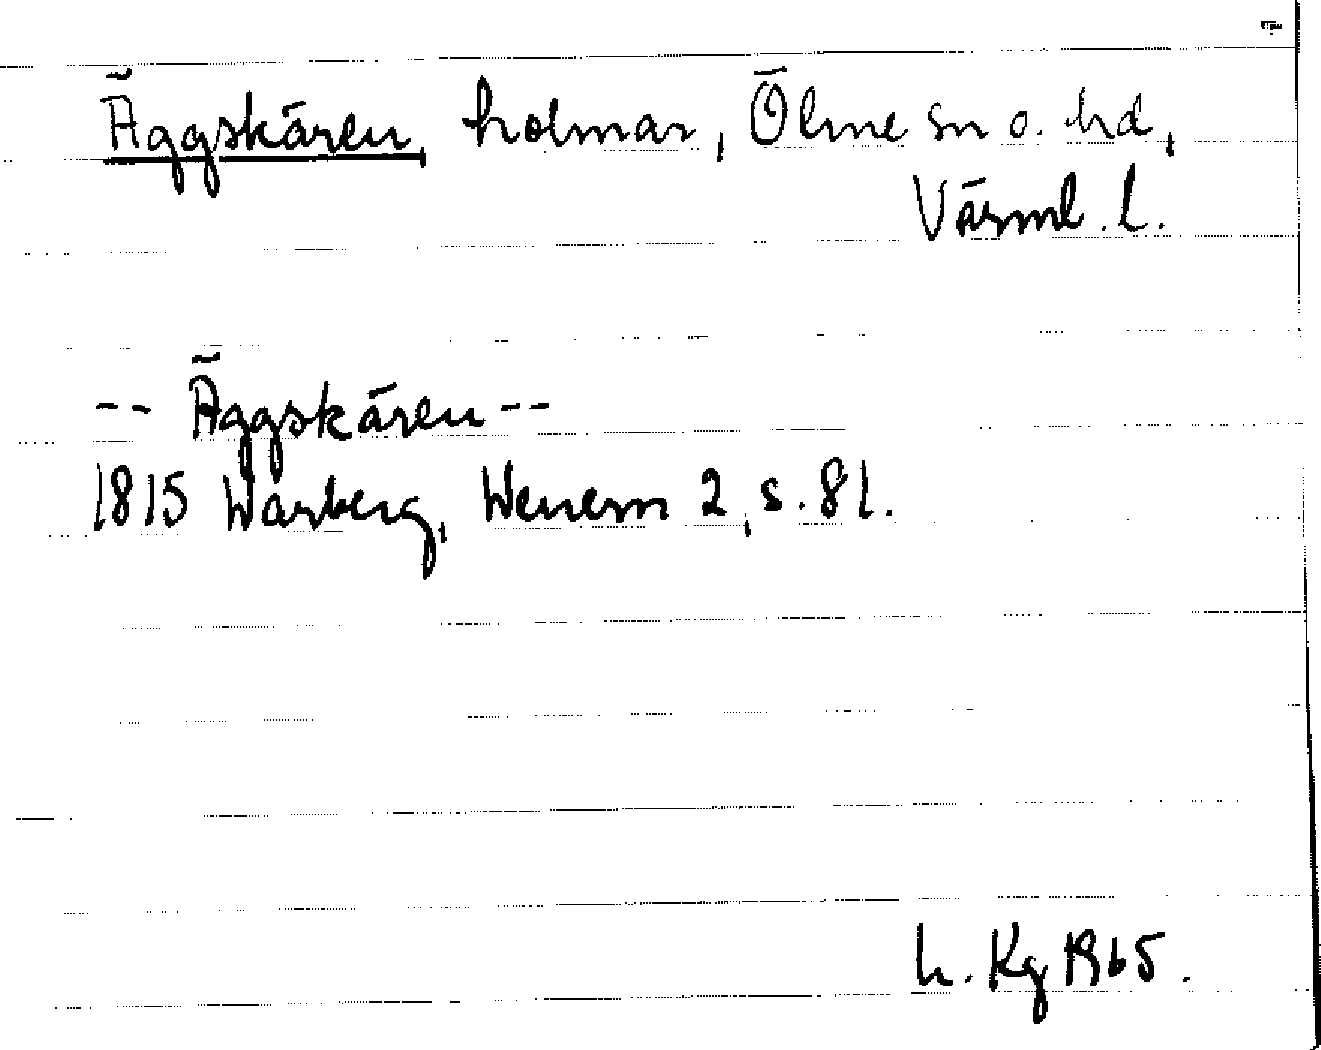 Äggskären, holmar, Ölme sn o. hd,
Värml. l.
-- Äggskären --
1815 Warberg, Wenern 2, s. 81.
h. Kg 1965.